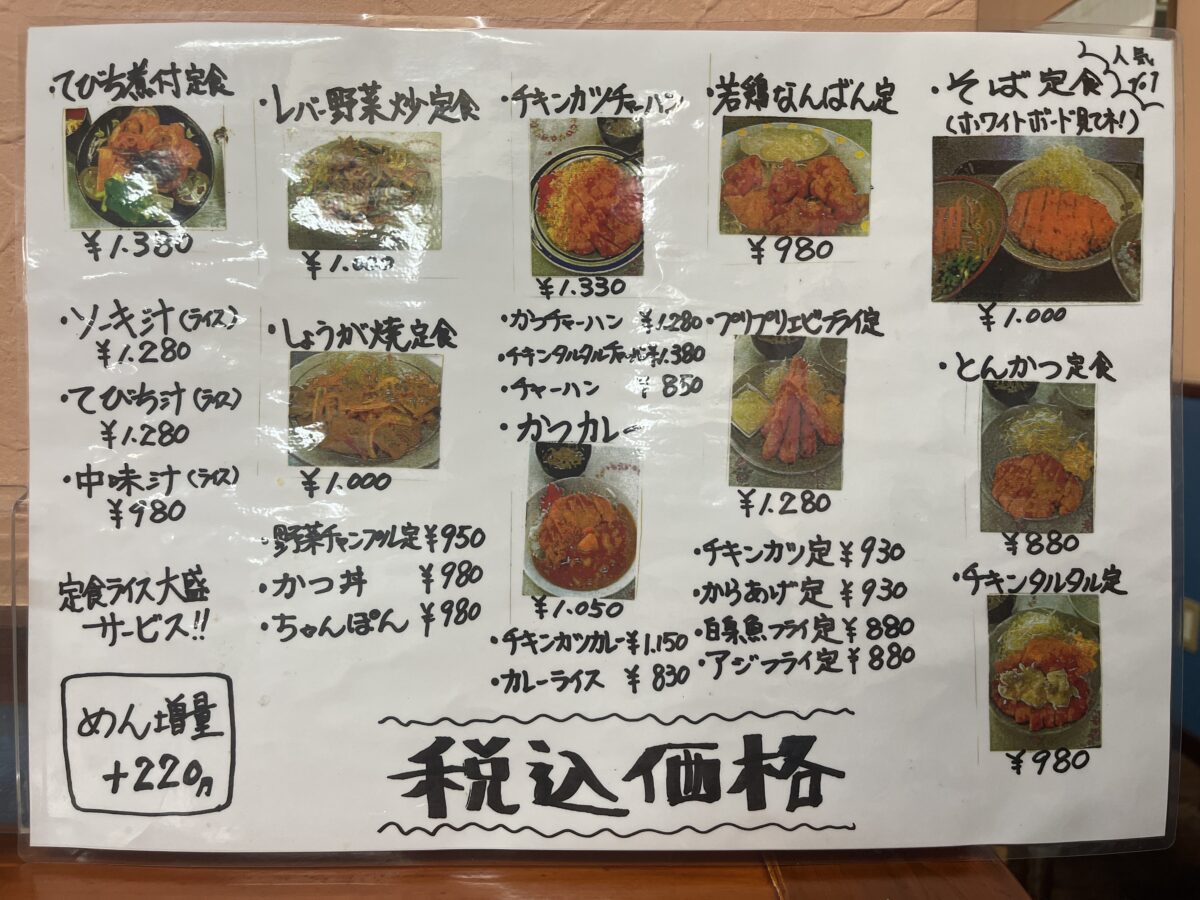 ・そば定食
人気
No.1
(ホワイトボード見てネ!)
¥1.000
・とんかつ定食
¥880
・チキンタルタル定
¥980
・若鶏なんばん定
¥980
・プリプリエビフライ定
¥1.280
・チキンカツ定 ¥930
・からあげ定 ¥930
・白身魚フライ定 ¥880
・アジフライ定 ¥880
・チキンカツチャーハン
¥1.330
・カツチャーハン ¥1.280
・チキンタルタルチャーハン ¥1.380
・チャーハン ¥850
・かつカレー
¥1.050
・チキンカツカレー ¥1.150
・カレーライス ¥830
・レバー野菜炒定食
¥1.000
・しょうが焼定食
¥1.000
・野菜チャンプル定 ¥950
・かつ丼 ¥980
・ちゃんぽん ¥980
・てびち煮付定食
¥1.380
・ソーキ汁(ライス)
¥1.280
・てびち汁(ライス)
¥1.280
・中味汁(ライス)
¥980
定食ライス大盛
サービス!!
めん増量
+220円
税込価格